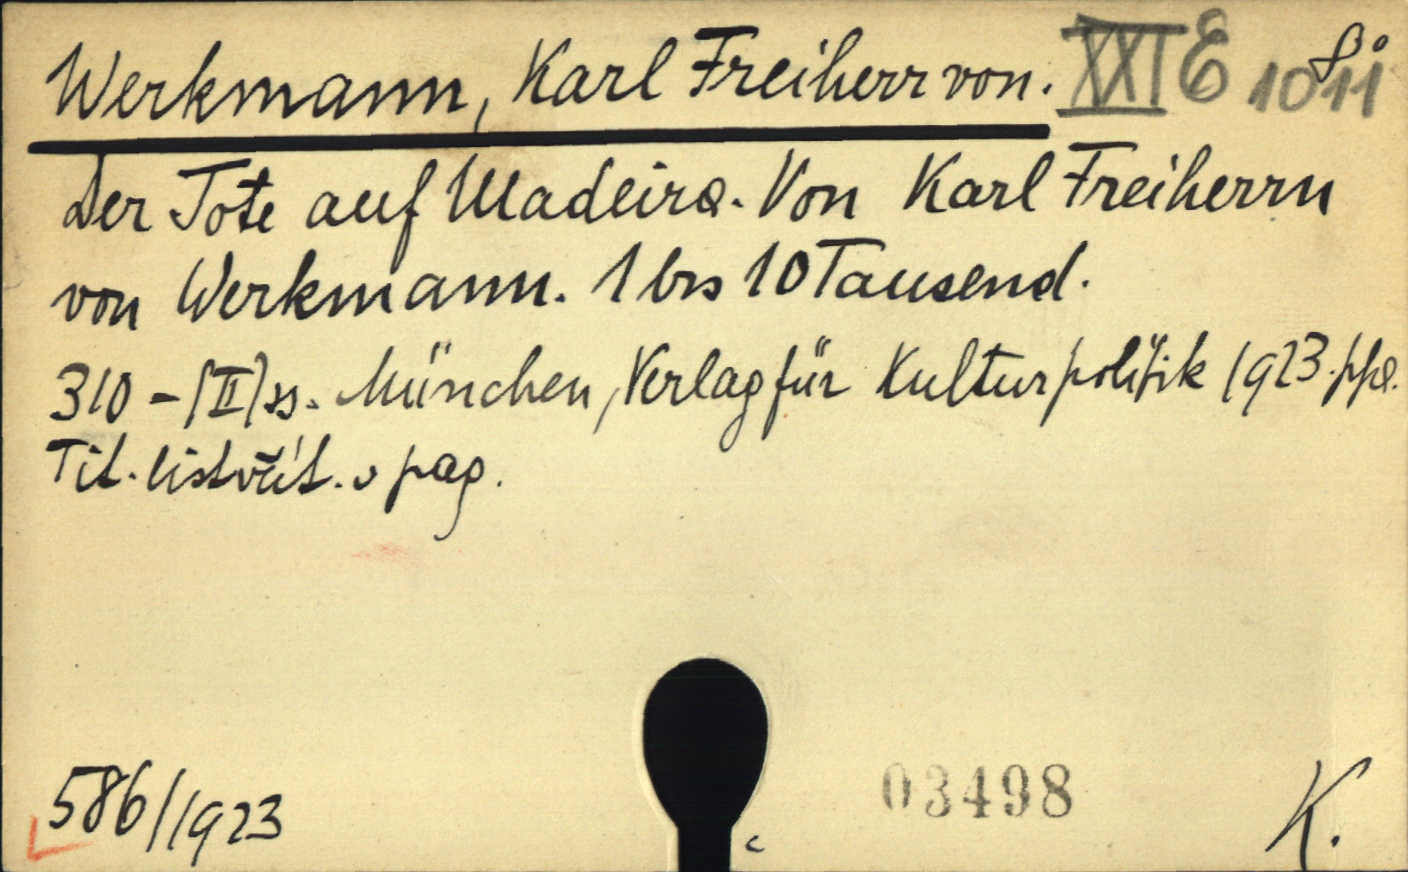 Werkmann, Karl Freiherr von. XXI E 1011 8°
Der Tote auf Madeira. Von Karl Freiherrn
von Werkmann. 1 bis 10 Tausend.
310 - [II] ss. München, Verlag für Kulturpolitik 1923. ppl.
Tit. list včít. v pag.
586/1923
03498
K.